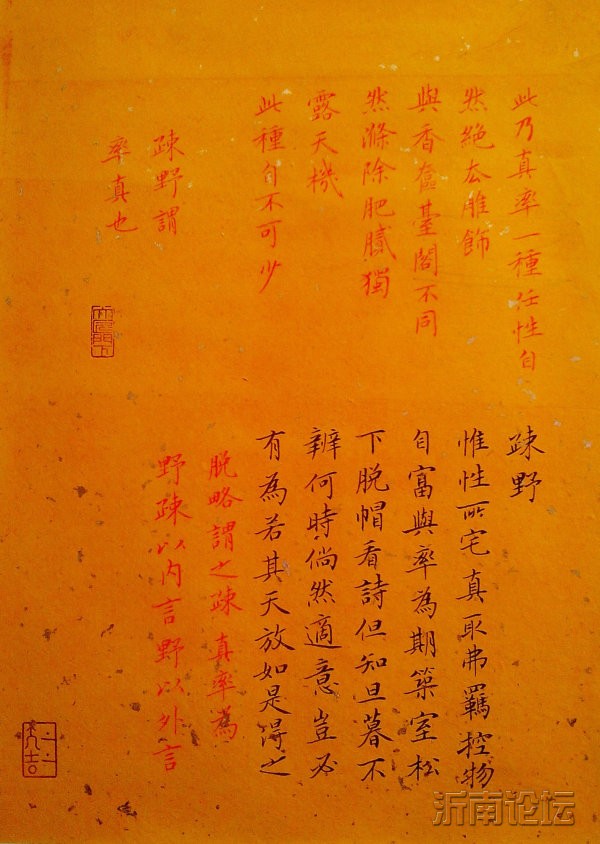 此乃真率一種任性自
然絕去雕飾
與香奩臺閣不同
然滌除肥膩獨
露天機
此種自不可少
疎野謂
率真也
疎野
惟性所宅真取弗羈控物
自富與率為期築室松
下脫帽看詩但知旦暮不
辨何時倘然適意豈必
有為若其天放如是得之
脫略謂之疎真率為
野疎以內言野以外言
沂南论坛